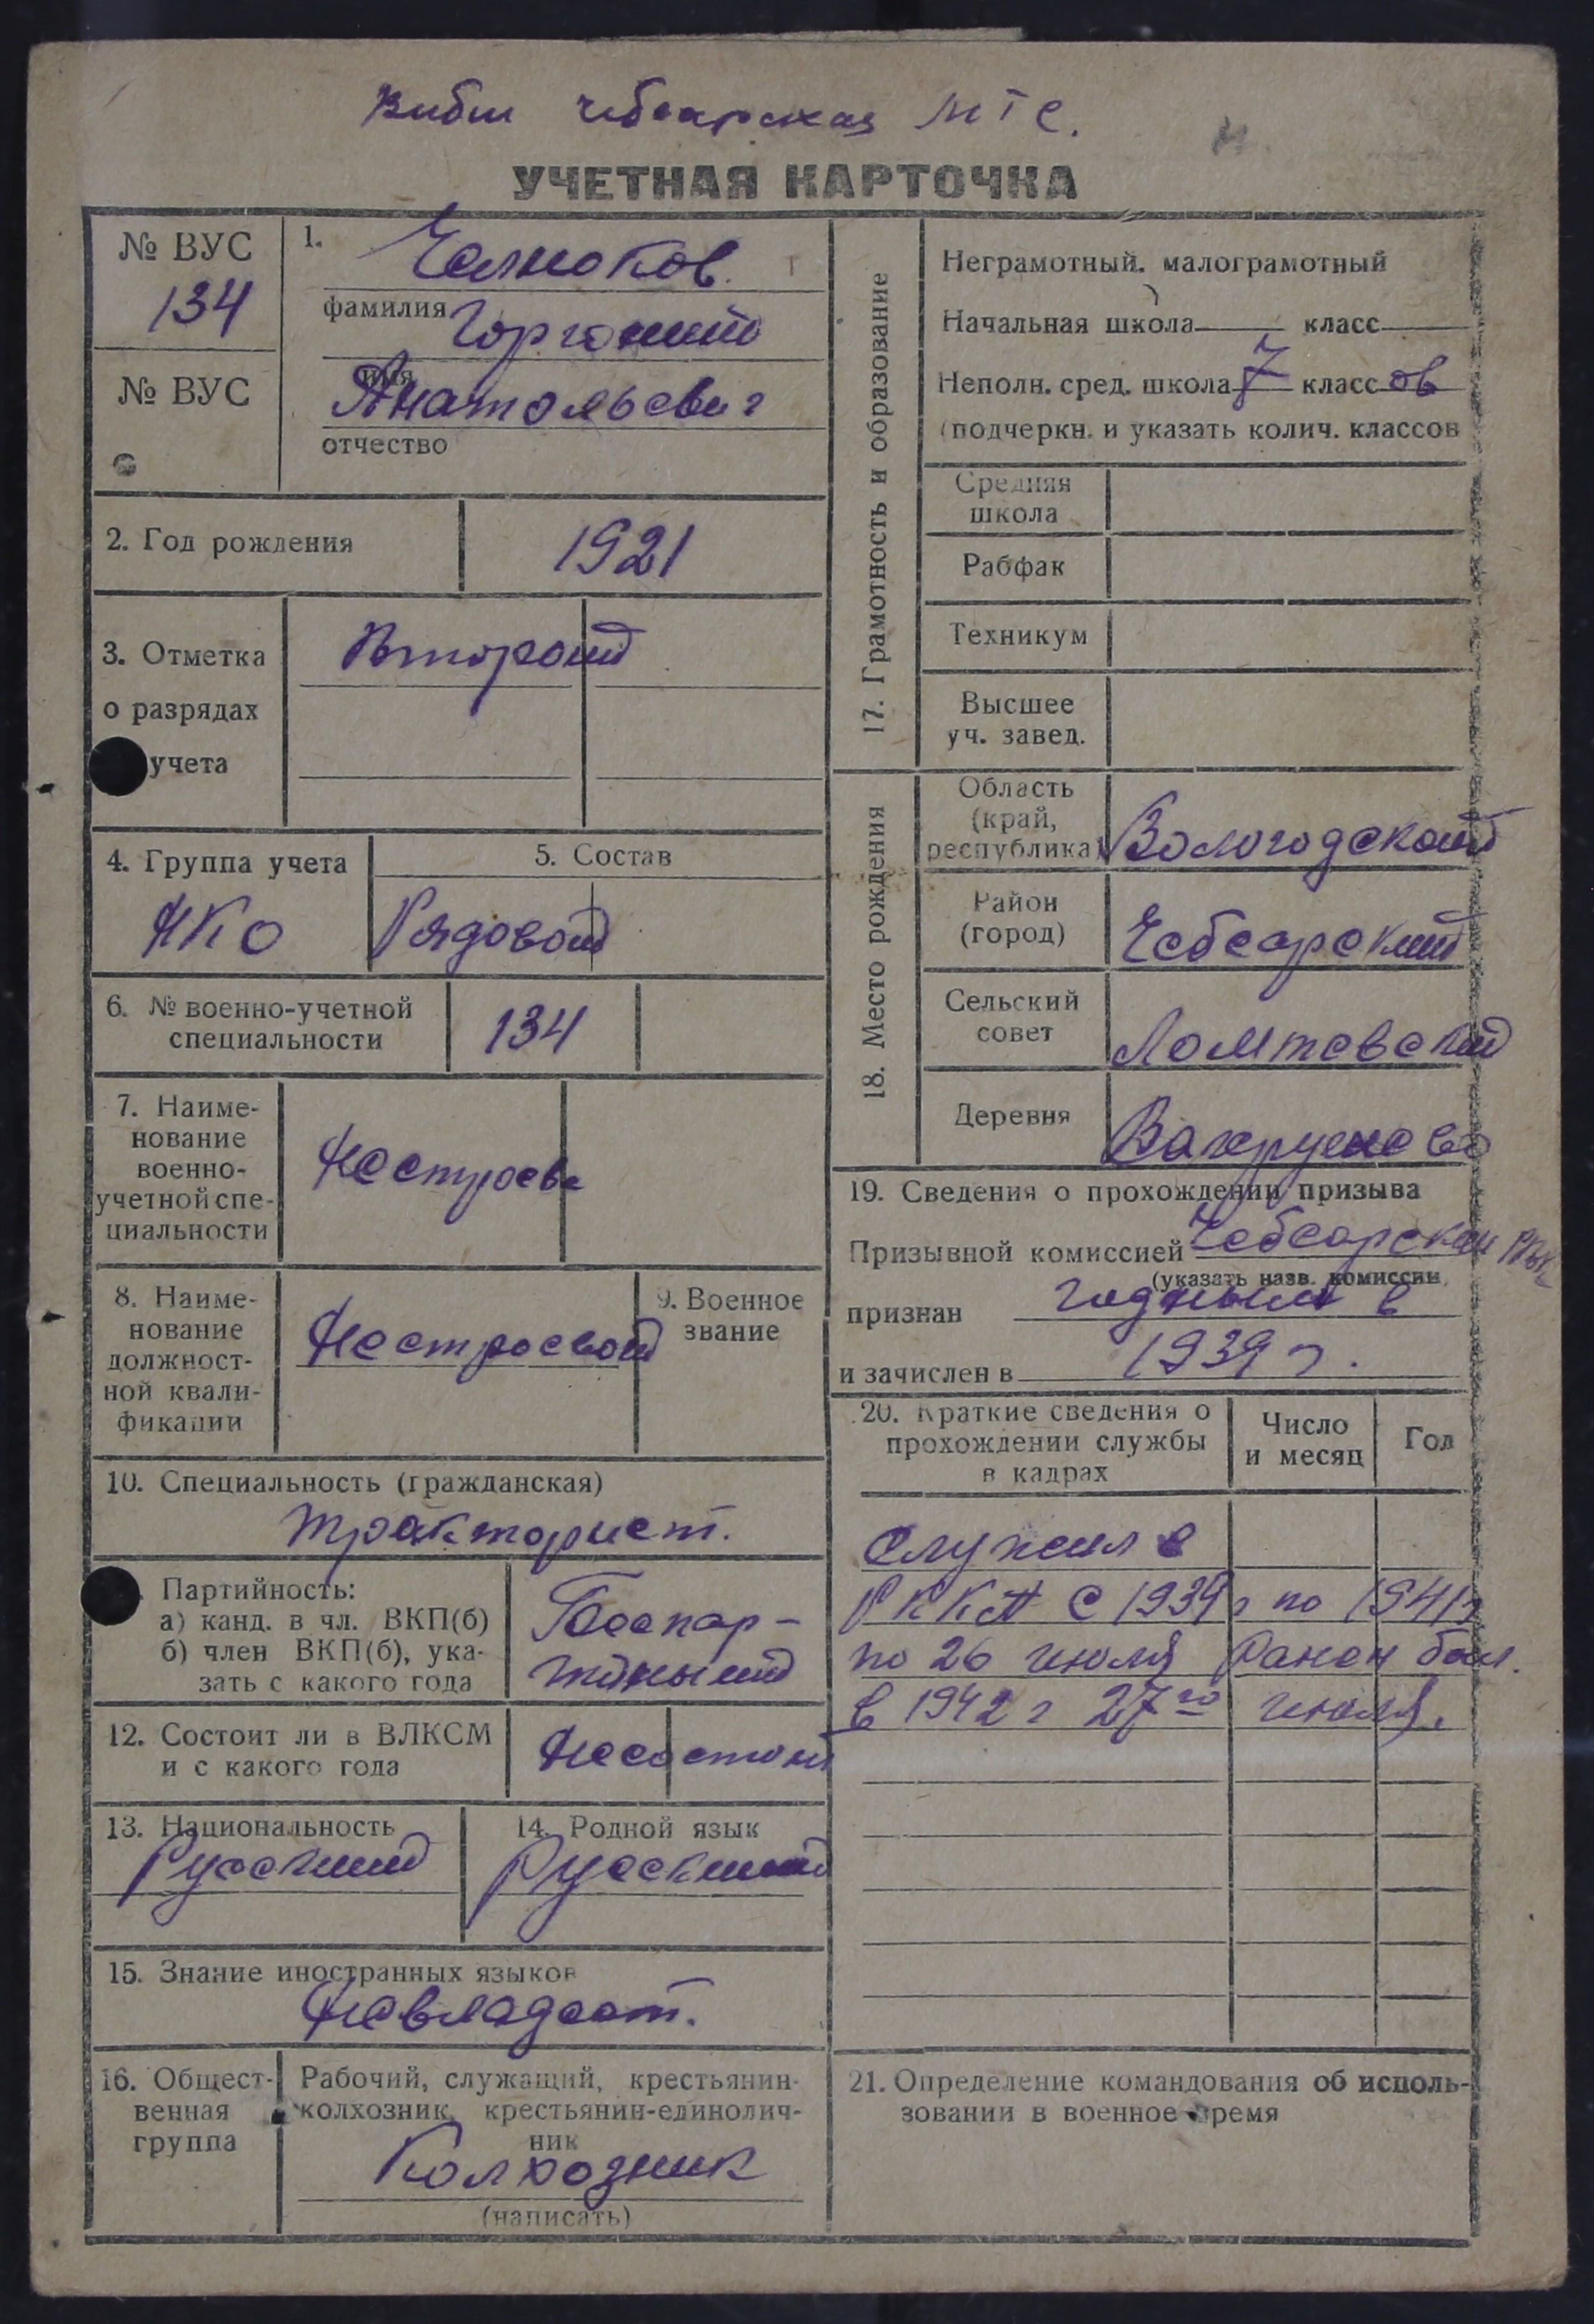 Чебсарская МТС.
УЧЕТНАЯ КАРТОЧКА
№ ВУС
134
№ ВУС
1.
фамилия
Горгоний
имя
Анатольевич
отчество
2. Год рождения
1921
3. Отметка
о разрядах
учета
Второй
4. Группа учета
НКО
5. Состав
Рядовой
6. № военно-учетной
специальности
134
7. Наиме-
нование
военно-
учетной спе-
циальности
Нестроев
8. Наиме-
нование
должност-
ной квали-
фикации
Нестроевой
9. Военное
звание
10. Специальность (гражданская)
Тракторист.
Партийность:
а) канд. в чл. ВКП(б)
б) член ВКП(б), ука-
зать с какого года
Беспар-
тийный
12. Состоит ли в ВЛКСМ
и с какого года
Несостоит
13. Национальность
Русский
14. Родной язык
Русский
15. Знание иностранных языков
Невладеет.
16. Общест-
венная
группа
Рабочий, служащий, крестьянин-
колхозник, крестьянин-единолич-
ник
Колхозник
(написать)
17. Грамотность и образование
Неграмотный, малограмотный
Начальная школа класс
Неполн. сред. школа 7 классов
(подчеркн. и указать колич. классов
Средняя
школа
Рабфак
Техникум
Высшее
уч. завед.
18. Место рождения
Область
(край,
республика)
Вологодской
Район
(город)
Чебсарский
Сельский
совет
Ломтевский
Деревня
Вахрушево
19. Сведения о прохождении призыва
Призывной комиссией Чебсарской РВК
(указать назв. комиссии,
признан годным в
и зачислен в 1939 г.
20. Краткие сведения о
прохождении службы
в кадрах
Число
и месяц
Год
Служил в
РККА с 1939 г по 1941 г
по 26 июля Ранен был.
в 1942 г 27го июля.
21. Определение командования об исполь-
зовании в военное время